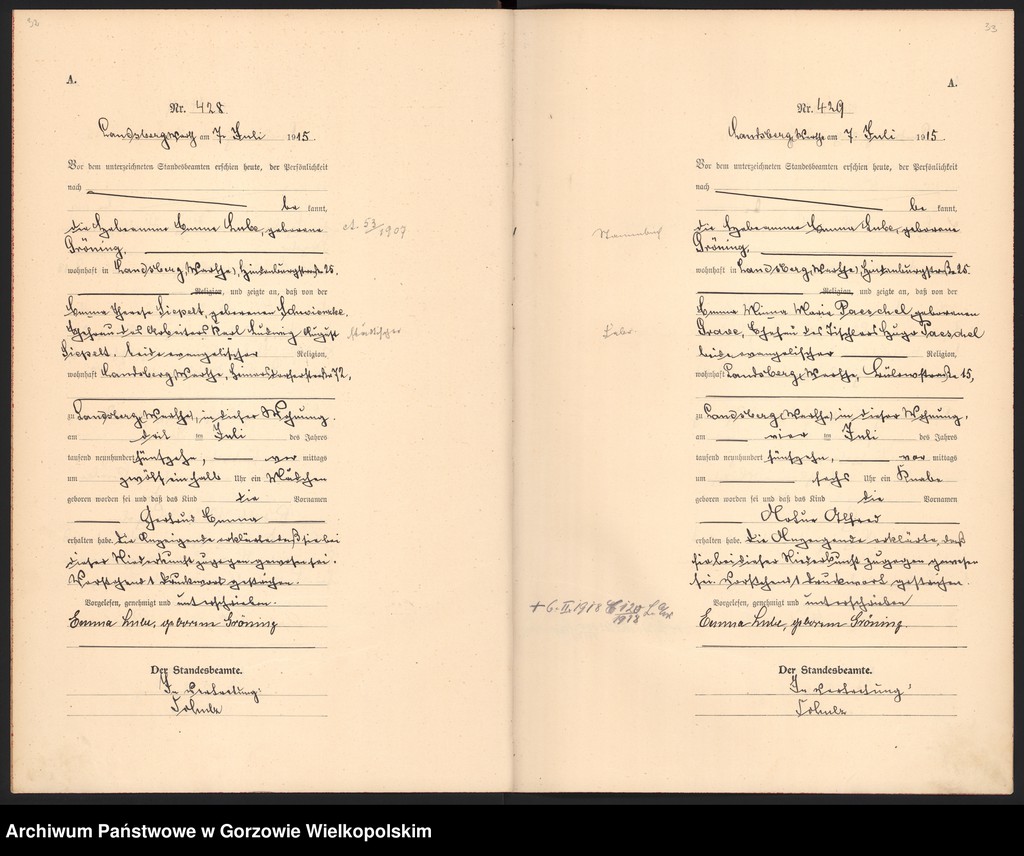 32
A.
Nr. 428
Landsberg Warthe am 7. Juli 1915.
Vor dem unterzeichneten Standesbeamten erschien heute, der Persönlichkeit
nach
be kannt,
die Hebamme Emma Lube, geborene
Gröning,
wohnhaft in Landsberg (Warthe), Hindenburgstraße 25.
Religion, und zeigte an, daß von der
Emma Therese Siepelt, geborenen
Ehefrau des Arbeiters Karl Ludwig August
Siepelt, beide evangelischer Religion,
wohnhaft Landsberg (Warthe), Heinersdorferstraße 72,
zu Landsberg (Warthe), in dieser Wohnung.
am drei ten Juli des Jahres
tausend neunhundert fünfzehn, vor mittags
um zwölfeinhalb Uhr ein Mädchen
geboren worden sei und daß das Kind die Vornamen
Gertrud Emma
erhalten habe. Die Anzeigende erklärte, daß sie bei
dieser Niederkunft zugegen gewesen sei.
Vorstehend 1 Druckwort gestrichen.
Vorgelesen, genehmigt und unterschrieben.
Emma Lube, geborene Gröning
Der Standesbeamte.
In Vertretung:
A. 53/1907
städtischer
33
A.
Nr. 429
Landsberg Warthe am 7. Juli 1915.
Vor dem unterzeichneten Standesbeamten erschien heute, der Persönlichkeit
nach
be kannt,
die Hebamme Emma Lube, geborene
Gröning,
wohnhaft in Landsberg (Warthe), Hindenburgstraße 25.
Religion, und zeigte an, daß von der
Emma Minna Marie Paeschel, geborenen
Ehefrau des Tischlers Hugo Paeschel
beide evangelischer Religion,
wohnhaft Landsberg (Warthe), Bülowstraße 15,
zu Landsberg (Warthe) in dieser Wohnung,
am vier ten Juli des Jahres
tausend neunhundert fünfzehn, vor mittags
um sechs Uhr ein Knabe
geboren worden sei und daß das Kind die Vornamen
Alfred
erhalten habe. Die Anzeigende erklärte, daß
sie bei dieser Niederkunft zugegen gewesen
sei. Vorstehend 1 Druckwort gestrichen.
Vorgelesen, genehmigt und unterschrieben
Emma Lube, geborene Gröning.
Der Standesbeamte.
In Vertretung:
+ 6. II. 1918 C 120/1918
Archiwum Państwowe w Gorzowie Wielkopolskim